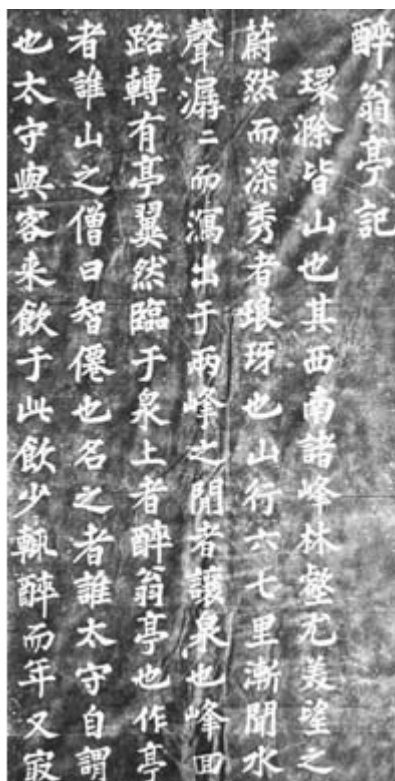 醉翁亭記
環滁皆山也其西南諸峰林壑尤美望之
蔚然而深秀者琅玡也山行六七里漸聞水
聲潺〻而瀉出于兩峰之間者讓泉也峰回
路轉有亭翼然臨于泉上者醉翁亭也作亭
者誰山之僧曰智僊也名之者誰太守自謂
也太守與客来飲于此飲少輒醉而年又㝡